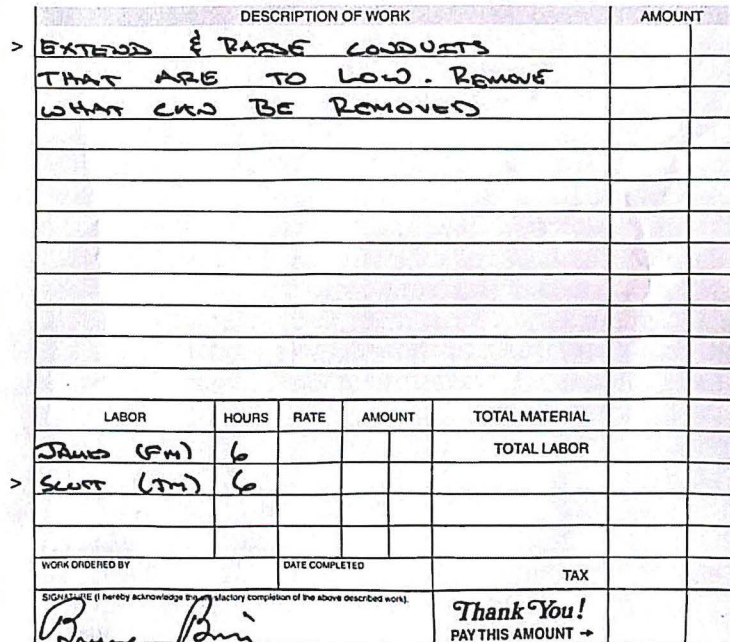 DESCRIPTION OF WORK AMOUNT
> EXTEND & RAISE CONDUITS
THAT ARE TO LOW. REMOVE
WHAT CAN BE REMOVED
LABOR HOURS RATE AMOUNT TOTAL MATERIAL
JAMES (FM) 6 TOTAL LABOR
> SCOTT (JM) 6
WORK ORDERED BY DATE COMPLETED TAX
SIGNATURE (I hereby acknowledge the satisfactory completion of the above described work).
Thank You!
PAY THIS AMOUNT →